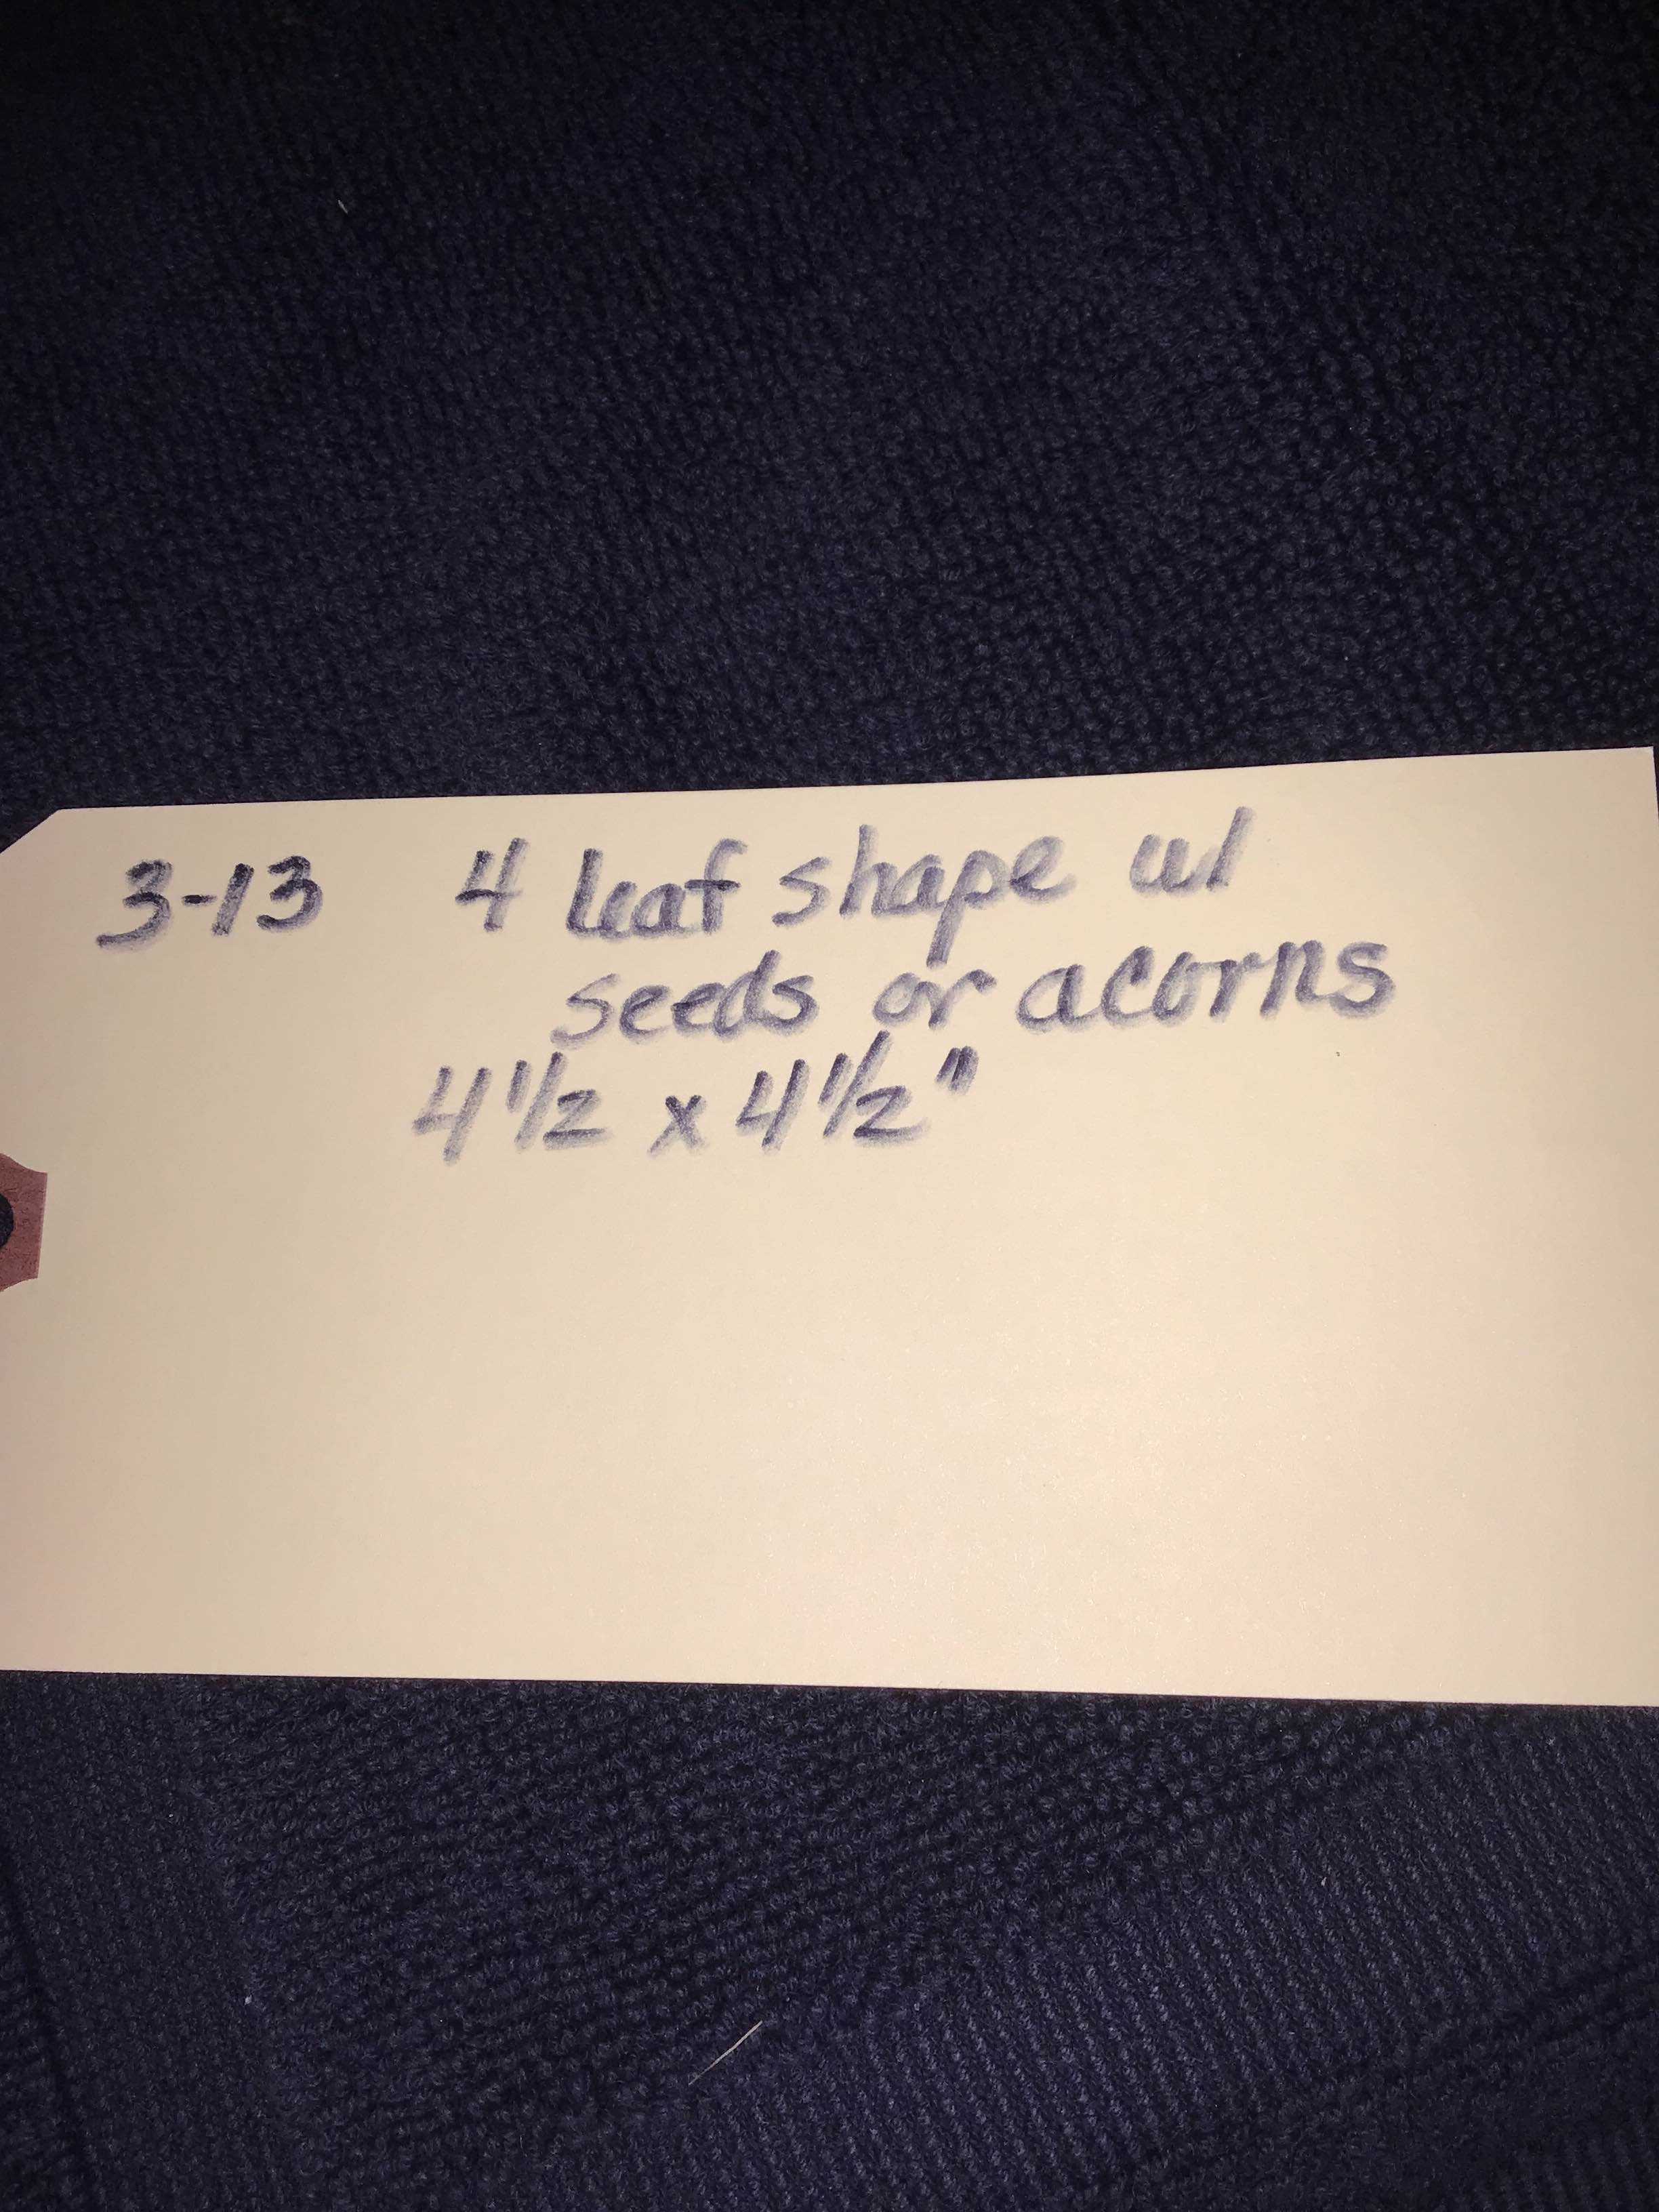 3-13 4 leaf shape w/
seeds or acorns
4 1/2 x 4 1/2"